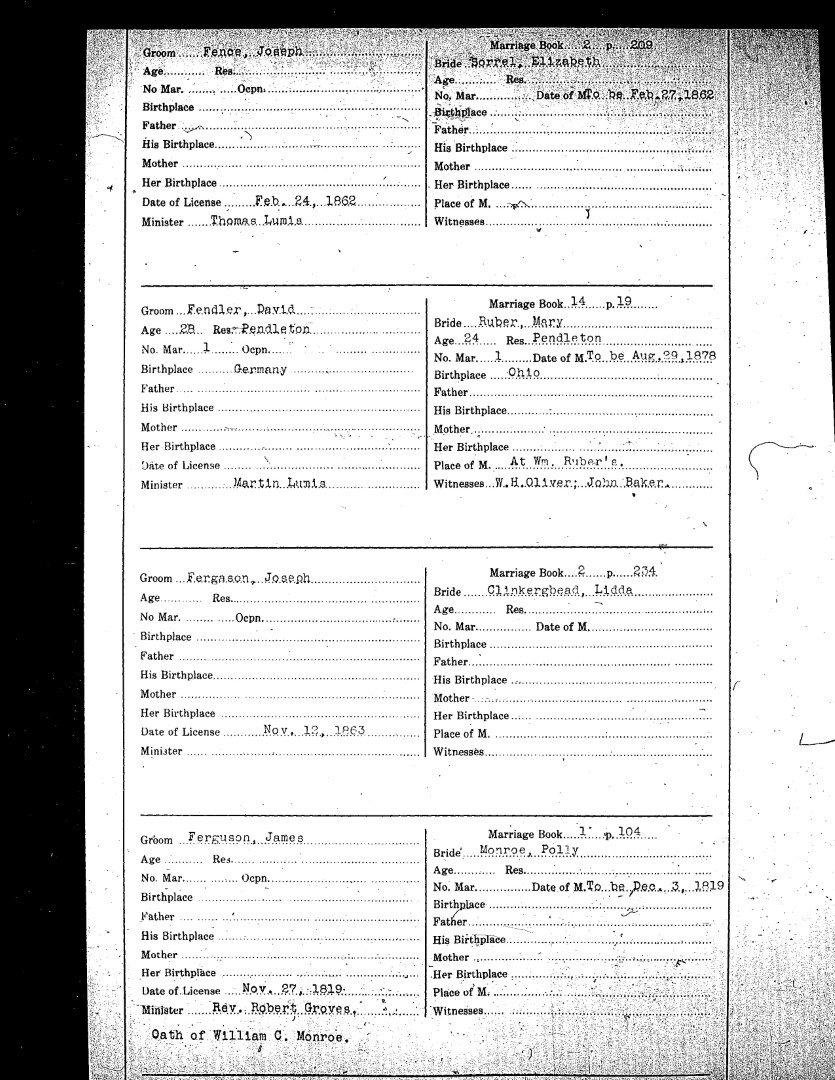 Groom Fence, Joseph
Age Res.
No Mar. Ocpn.
Birthplace
Father
His Birthplace
Mother
Her Birthplace
Date of License Feb. 24, 1862
Minister Thomas Lumis
Marriage Book 2 p. 209
Bride Sorrel, Elizabeth
Age Res.
No. Mar. Date of M. To be Feb. 27, 1862
Birthplace
Father
His Birthplace
Mother
Her Birthplace
Place of M.
Witnesses
Groom Fendler, David
Age 28 Res. Pendleton
No. Mar. 1 Ocpn.
Birthplace Germany
Father
His Birthplace
Mother
Her Birthplace
Date of License
Minister Martin Lumis
Marriage Book 14 p. 19
Bride Ruber, Mary
Age 24 Res. Pendleton
No. Mar. 1 Date of M. To be Aug. 29, 1878
Birthplace Ohio
Father
His Birthplace
Mother
Her Birthplace
Place of M. At Wm. Ruber's.
Witnesses W.H.Oliver; John Baker.
Groom Fergason, Joseph
Age Res.
No Mar. Ocpn.
Birthplace
Father
His Birthplace
Mother
Her Birthplace
Date of License Nov. 12, 1863
Minister
Marriage Book 2 p. 234
Bride Clinkergbead, Lidda
Age Res.
No. Mar. Date of M.
Birthplace
Father
His Birthplace
Mother
Her Birthplace
Place of M.
Witnesses
Groom Ferguson, James
Age Res.
No. Mar. Ocpn.
Birthplace
Father
His Birthplace
Mother
Her Birthplace
Date of License Nov. 27, 1819
Minister Rev. Robert Groves.
Oath of William C. Monroe.
Marriage Book 1 p. 104
Bride Monroe, Polly
Age Res.
No. Mar. Date of M. To be Dec. 3, 1819
Birthplace
Father
His Birthplace
Mother
Her Birthplace
Place of M.
Witnesses